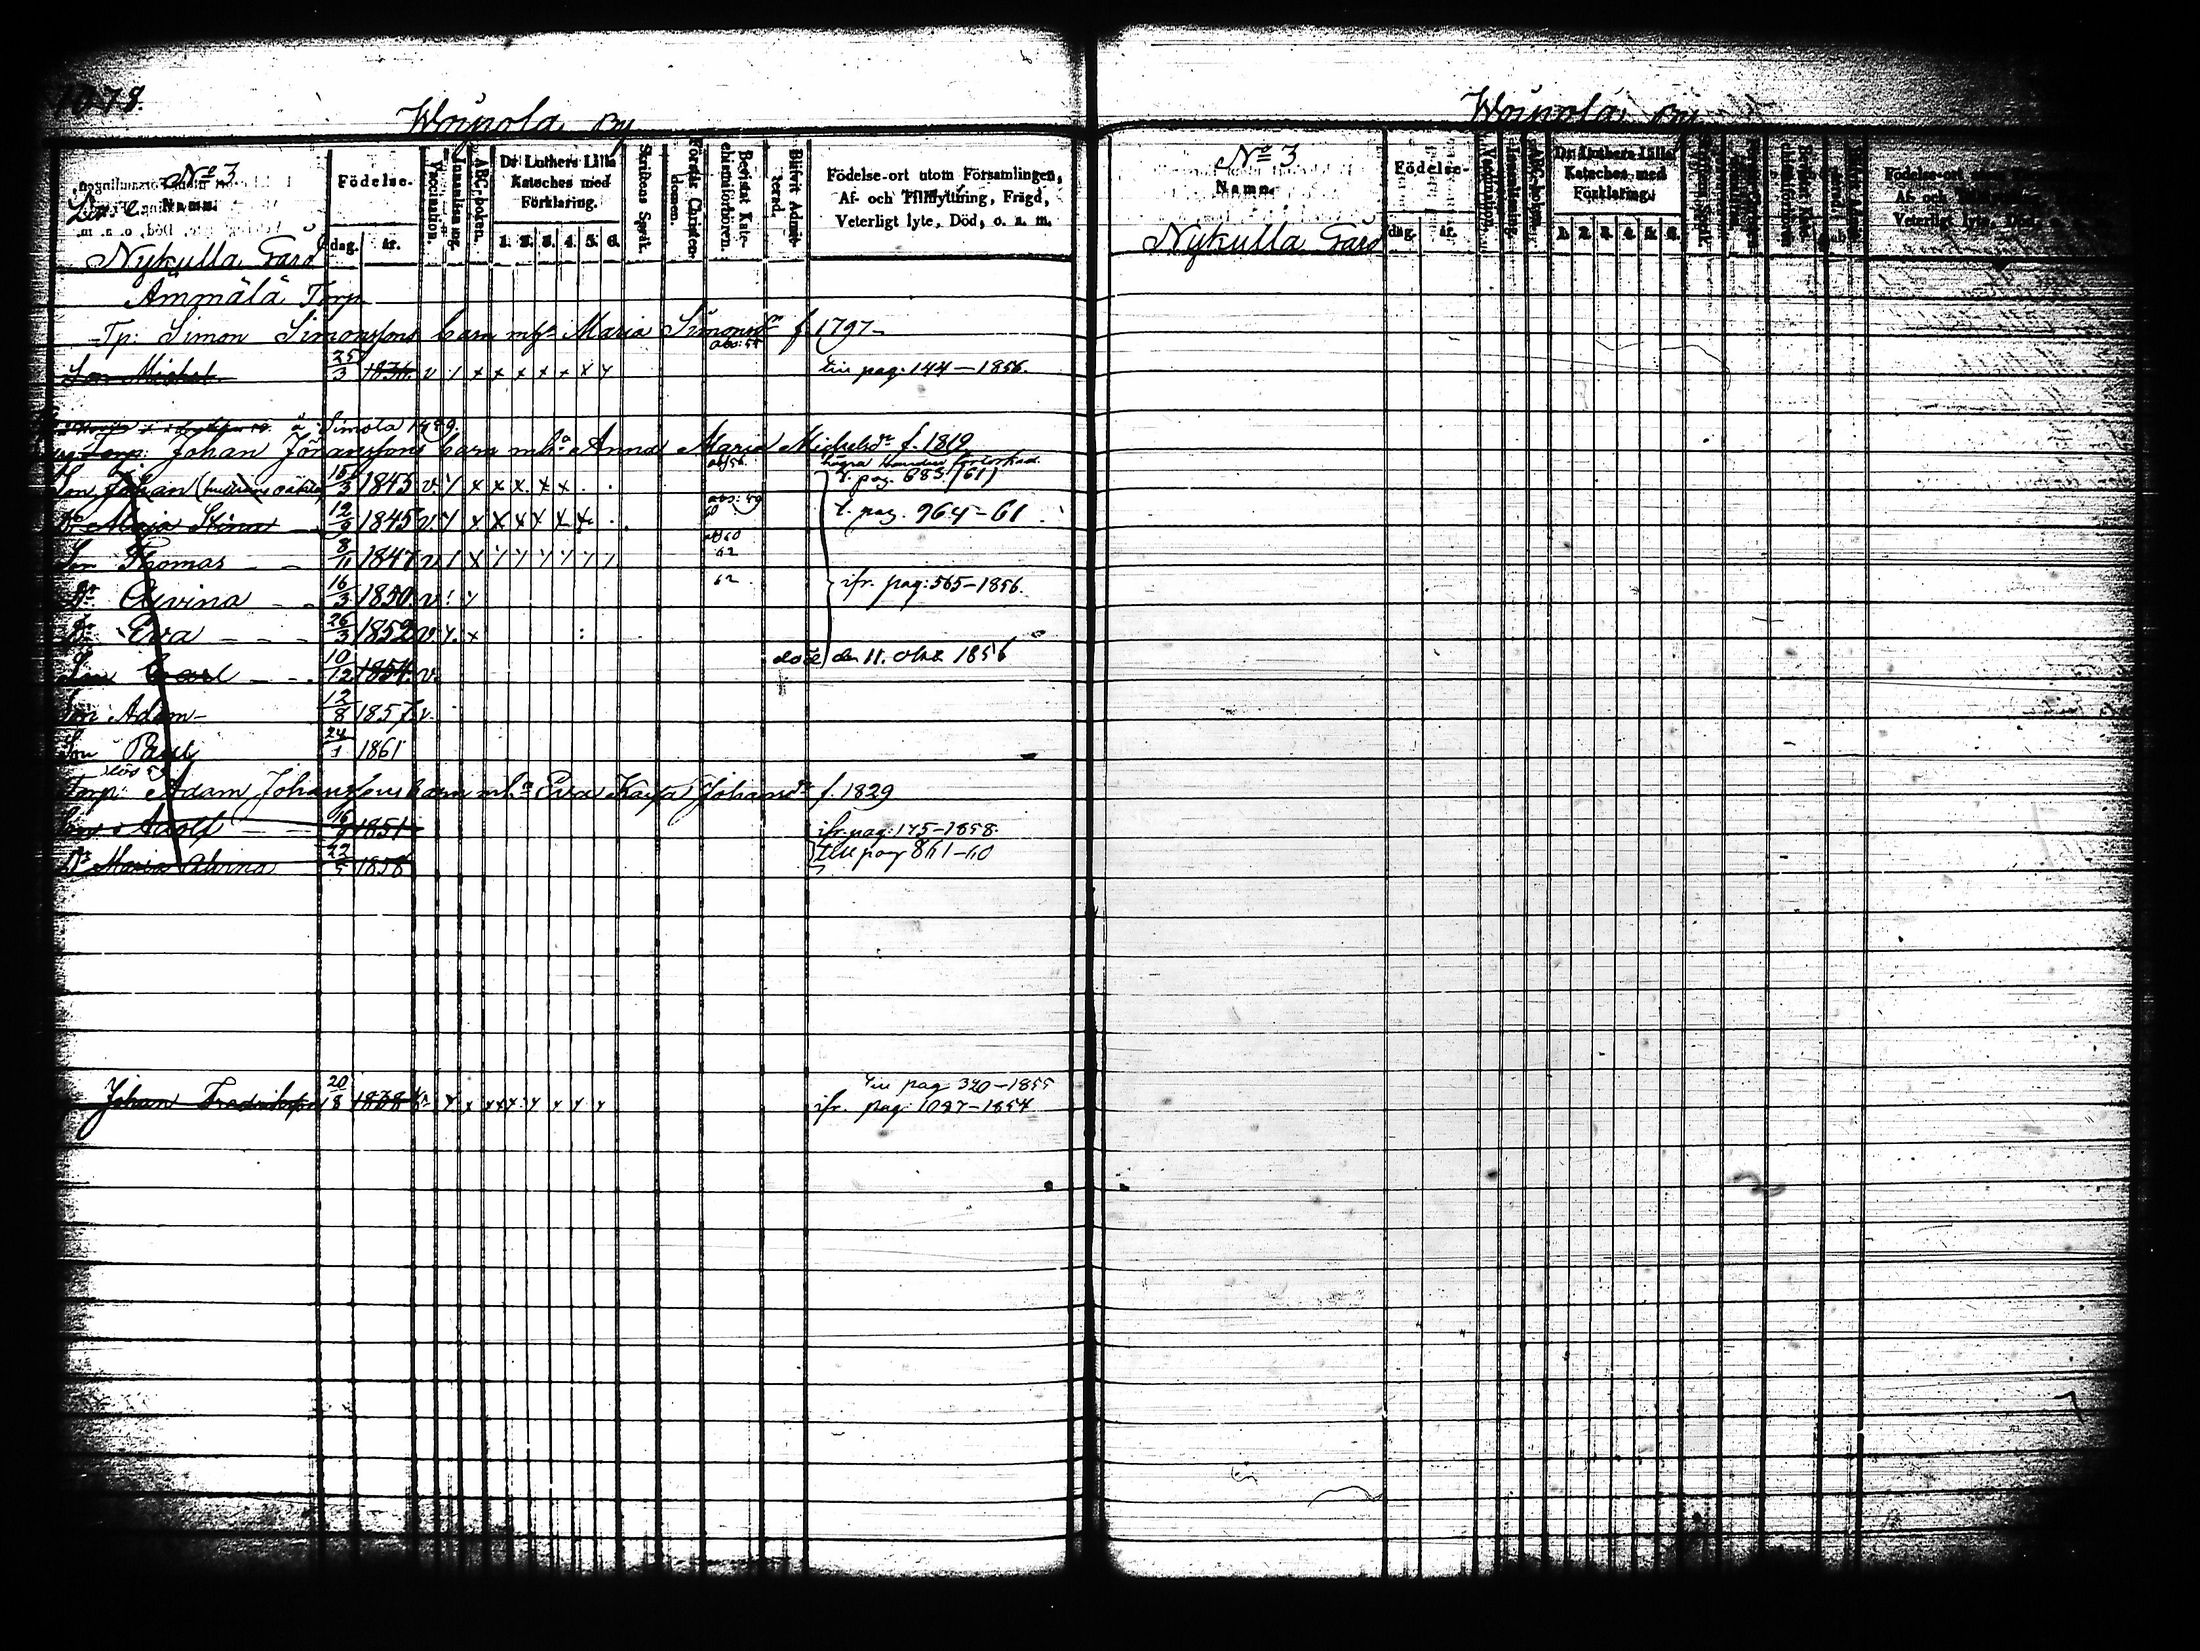 1078.
Woipola By
No 3
Namn.
Nykulla Gård
Födelse-
dag. år.
Vaccination.
Innanläsning.
ABC-boken.
Dr Luthers Lilla Kateches med Förklaring.
1. 2. 3. 4. 5. 6.
Skriftens Språk.
Förstår Christendomen.
Bevistat Katechemiförhören.
Blifvit Admitterad.
Födelse-ort utom Församlingen,
Af- och Tillflyttning, Frägd,
Veterligt lyte, Död, o. a. m.
Ammälä Torp
Tp: Simon Simonssons barn mh Maria Simonsdr f. 1797
Son Michel 25/3 1836 v till pag. 144 – 1856.
å Simola 1859.
Torp: Johan Jöranssons barn mh Anna Maria Michelsdr f. 1819
Son Johan 15/3 1843 v t. pag. 683 (61)
Dr Maja Stina 12/9 1845 v t. pag. 964–61
Son Thomas 8/11 1847 v
Dr 16/3 1850 v ifr. pag: 565–1856.
Dr Eva 26/3 1852 v
Son Carl 10/12 1854 v död den 11. 1856
Son Adam 12/8 1857 v
Son Paul 24/1 1861
Torp: Adam Johanssons barn mh Eva Kajsa Johansdr f. 1829
Son Adolf 1851 ifr. pag: 175–1858.
Dr Maria 22/5 1858 till pag 861–60
till pag 320–1855
Johan Fredriksson 20/8 1838 ifr. pag: 1087–1854
Woipola By
No 3
Namn.
Nykulla Gård
Födelse-
dag. år.
Vaccination.
Innanläsning.
ABC-boken.
Dr Luthers Lilla Kateches med Förklaring.
1. 2. 3. 4. 5. 6.
Födelse-ort
Af- och
Veterligt lyte, Död,